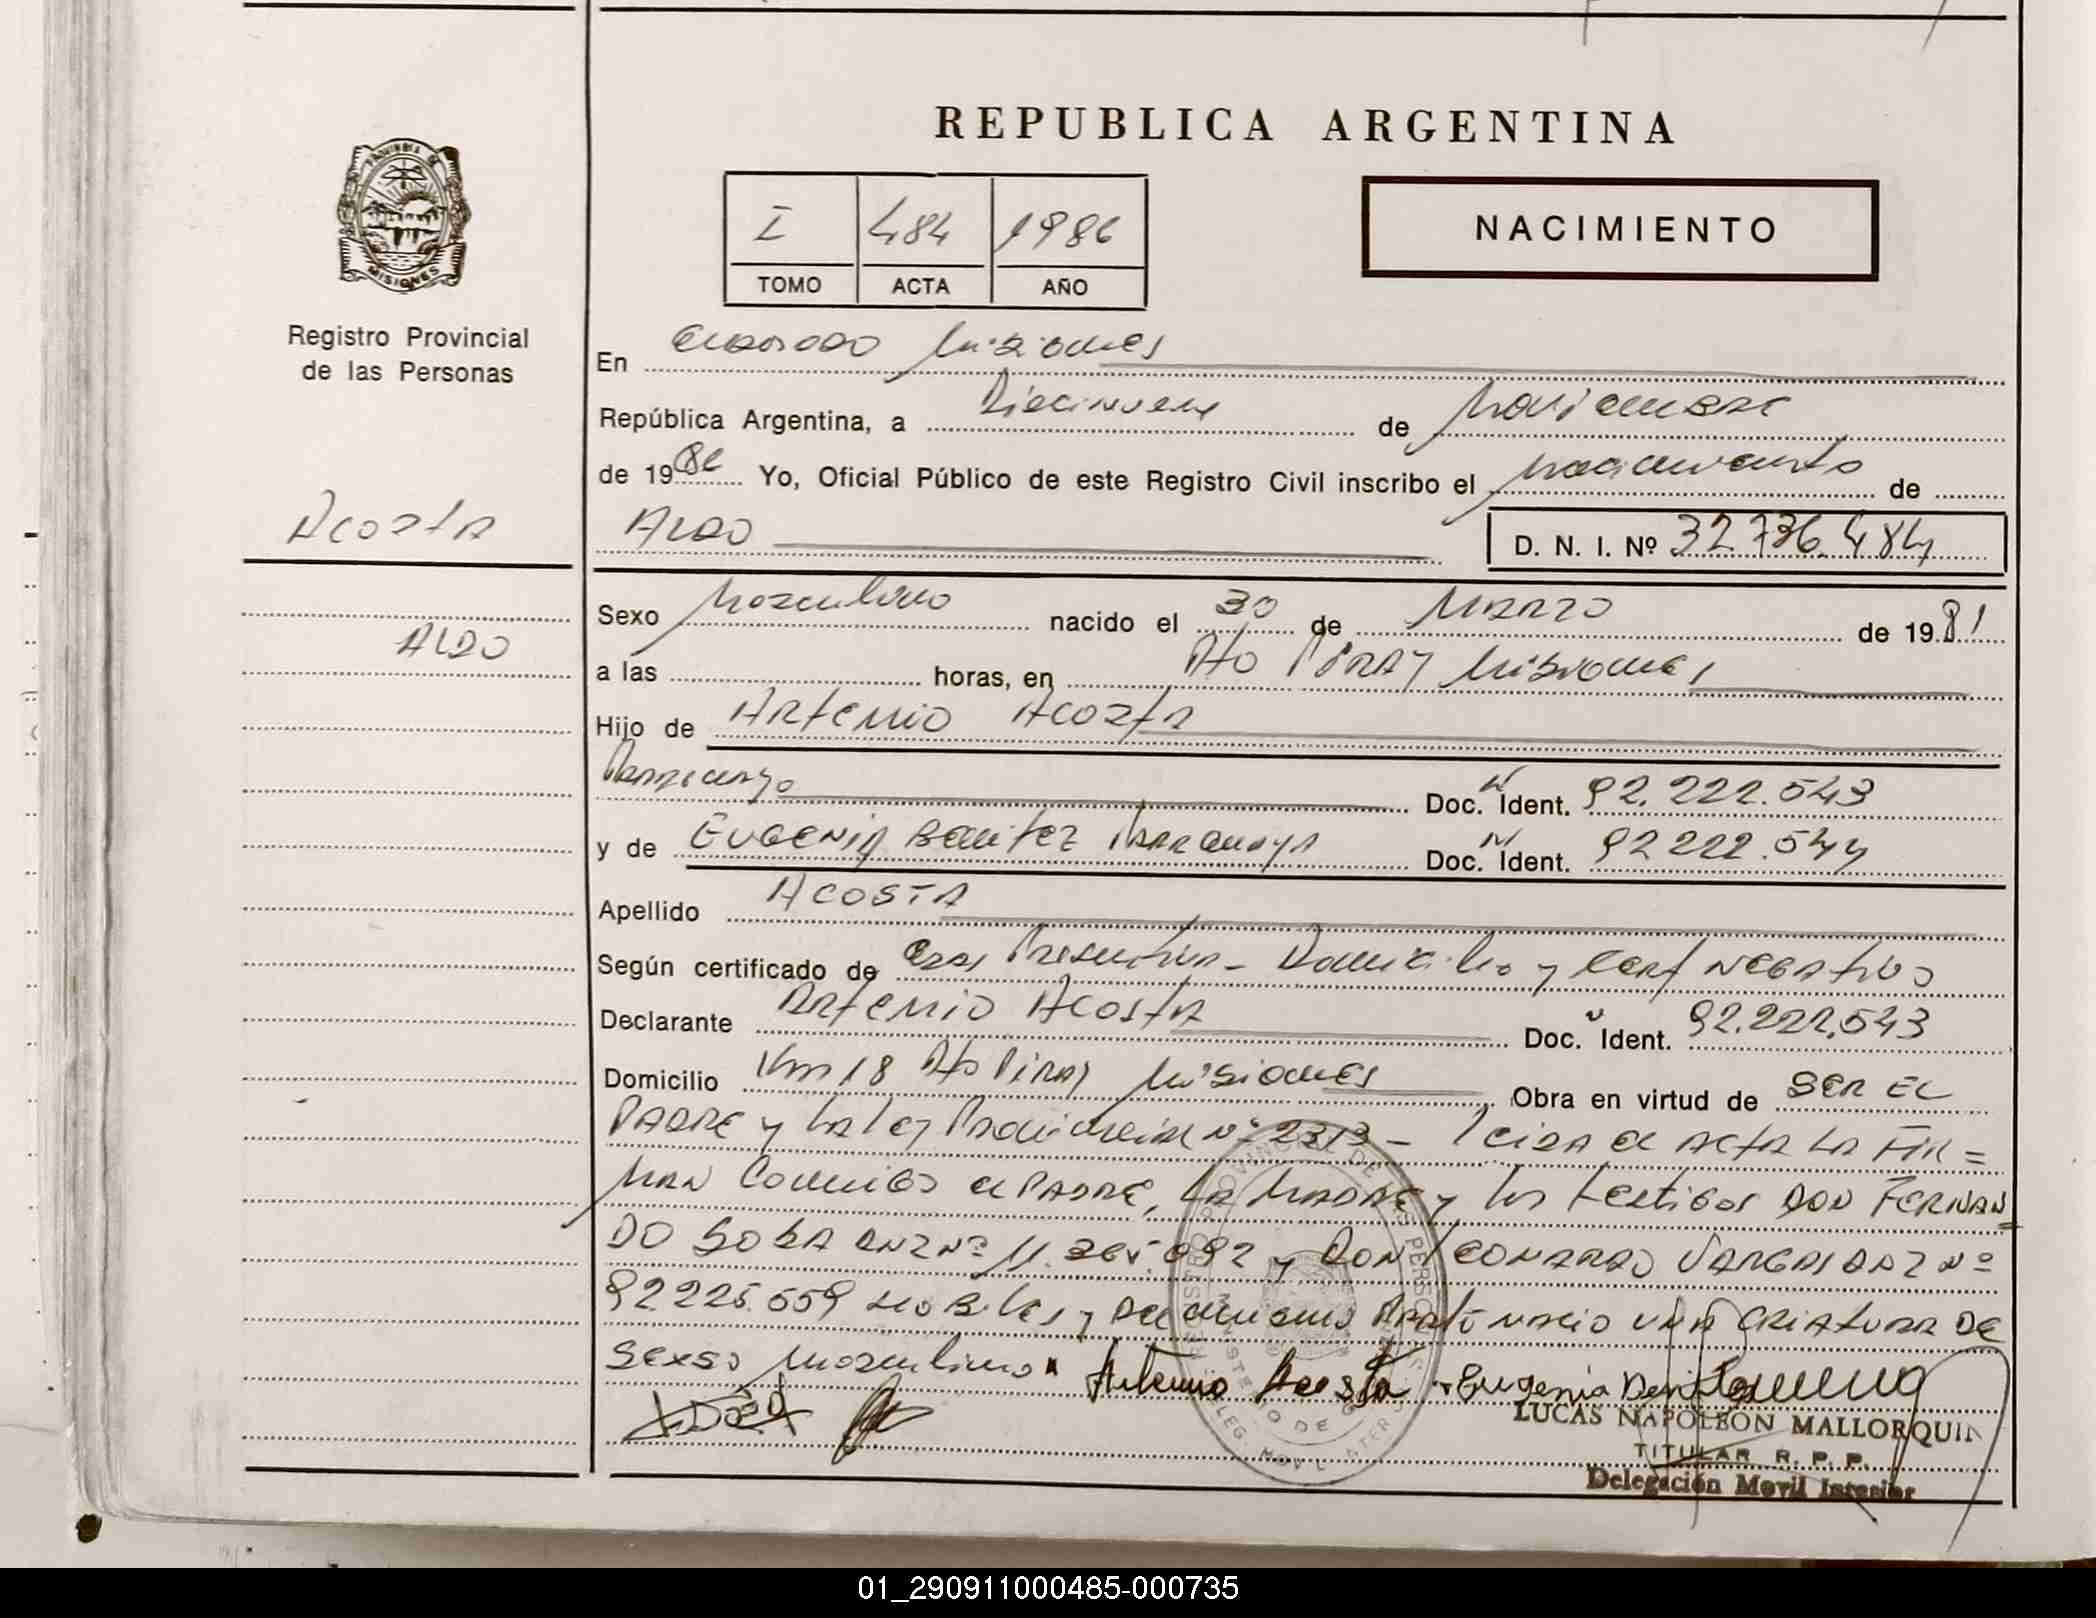 REPUBLICA ARGENTINA
PROVINCIA DE MISIONES
Registro Provincial
de las Personas
I 484 1986
TOMO ACTA AÑO
NACIMIENTO
En Eldorado Misiones
República Argentina, a Diecinueve de Noviembre
de 1986 Yo, Oficial Público de este Registro Civil inscribo el Nacimiento de
Acosta
ALDO
D. N. I. Nº 32.736.484
ALDO
Sexo Masculino nacido el 30 de MARZO de 1981
a las horas, en Pto PIRAY Misiones
Hijo de Artemio Acosta
Paraguayo Doc. Ident. 92.222.543
y de EUGENIA Benitez Paraguaya Doc. Ident. 92 222.544
Apellido ACOSTA
Según certificado de Edad Presuntiva - Domicilio y Cert NEGATIVO
Declarante Artemio Acosta Doc. Ident. 92.222.543
Domicilio Km 18 Pto Piray Misiones Obra en virtud de SER EL
PADRE y La Ley Provincial Nº 2313 - Leida el ACTA LA FIR=
MAN Conmigo el PADRE, LA MADRE y los testigos DON FERNAN
DO SOSA DNI Nº 11.365.092 y DON LEONARDO VARGAS DNI Nº
92225.659 Habiles y nacio UNA CRIATURA DE
Sexso Masculino
Artemio Acosta Eugenia Benitez
LUCAS NAPOLEON MALLORQUIN
TITULAR R. P. P.
Delegación Movil Interior
01_290911000485-000735